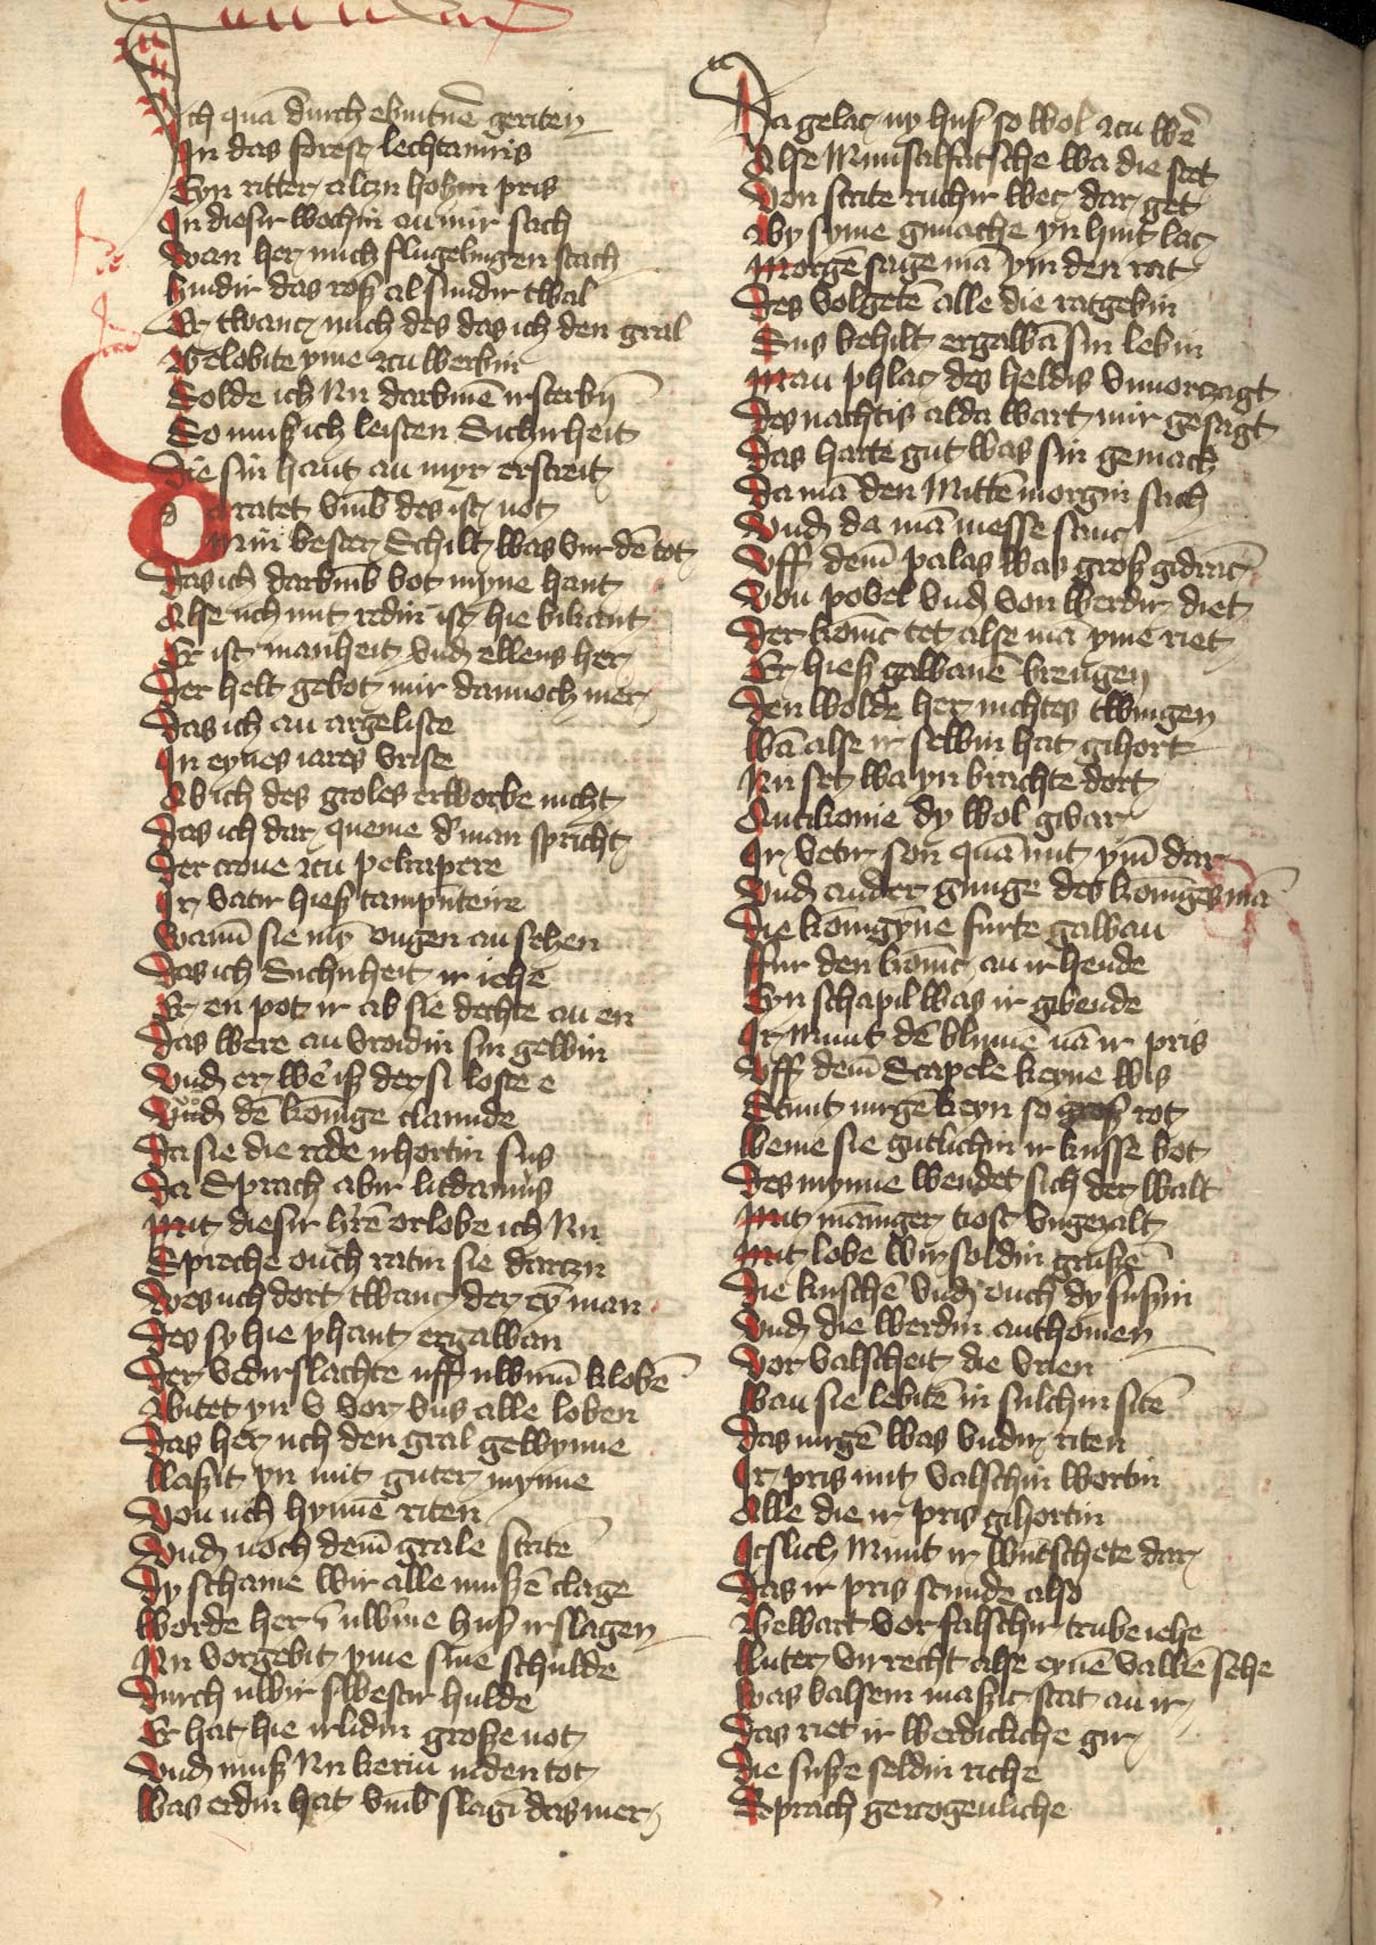 Ich quā durch ebintuē geriten
In das forest lechtamris
Eyn ritter alczu hohin pris
In diesir wochin an mir sach
wan her mich flugelingen stach
hindir das roſz al sundir twal
Er twanc mich des das ich den gral
Gelobite yme zcu werbin
Solde ich Nu darbmē irsterbin
So muſz ich leisten Sichirheit
Die sin hant an myr erstreit
Nu ratet vmb des ist not
Min bester Schilt was vur dē tot
Das ich darvmb bot myne hant
Alse uch mit redin ist hie bikant
Er ist manheit vnd ellens her
Der helt gebot mir dannoch mer
Das ich an argeliste
In eynes iares vriste
Ab ich des groles erworbe nicht
Das ich dar queme d' man spricht
Der crone zcu pelrapere
Ir vatir hieſz tampūteire
wann̄ sie mȳ ougen an sehen
Das ich Sichirheit ir iehē
Er en pot ir ab sie dechte an en
Das were an vroidin sin gewin
vnd er wē iſz der si loste e
Vnd dē konīge clamide
Da sie die rede irhortin sus
Da Sprach abir liddamus
Mit diesir h'rē orlobe ich Nu
Spreche ouch ratin sie darczu
wes uch dort twanc der eȳ man
Des sy hie phant ergawan
Der vedirslachte uff uwirm̄ klobē
Bitet yn v vor vns alle loben
Das her uch den gral gewynne
llaſzit yn mit guter mynne
Von uch hynnē riten
Vnd noch dem̄ grale strite
Dy schame wir alle muſzē clage
worde her ī uw'me huſz irslagen
Nu vorgebit yme sine schulde
Durch uwir swestir hulde
Er hat hie irlidin groſze not
vnd muſz Nu kerin in den tot
was erdin hat vmb slagī das mer
Da gelac ny huſz so wol zcu wē
Alse Munsalfatsche wa die stet
Von strite ruchir wec dar get
By syme gmache yn hint lac
Morgē sage mā ym den rat
Des volgetē alle die ratgebin
Sus behilt ergawā sin lebin
Man phlac des heldis vnuorczagt
Des nachtis alda wart mir gesagt
Das harte gut was sin gemach
Da mā den Mittē morgin sach
Vnd da mā messe sanc
Vff dem̄ palas was groſz gidranc
Von povel vnd von werdir diet
Der konīc tet alse mā yme riet
Er hieſz gawanē brengen
Den wolde her nichtes twingen
wā alse ir selwin hat gihort
Nu set wa yn brachte dort
Antikonie dy wol givar
Ir vetir son quā mit ym̄ dar
vnd ander gnuge des konīges mā
Die konīgȳne furte gawan
ffur den konīc an ir hende
Eyn schapil was ir gibende
Ir Munt dē blumē nā ir pris
Vff dem̄ Scapele keyne wis
Stunt nirgē keyn so groſz rot
weme sie gutlichin ir kusse bot
Des mynne wendet sich der walt
Mit māniger tiost vngezalt
Mit lobe wir soldin gruſzē
Die kuschē vnd ouch dy suſzin
Vnd die werdin anthonien
Vor valscheit die vrien
wan sie lebitē in sulchin sitē
Das nirgē was vndir riten
Ir pris mit valschin wortin
Alle die ir pris gihortin
Icslich Munt ir wūtschete dar
Das ir pris stunde also
Bewart vor falschir trube iehe
lluter virrecht alse eynē valkē sehe
was balsem maſzic stat an ir
Das riet ir werdicliche gir
Die suſze seldin riche
Sprach gerzogenliche